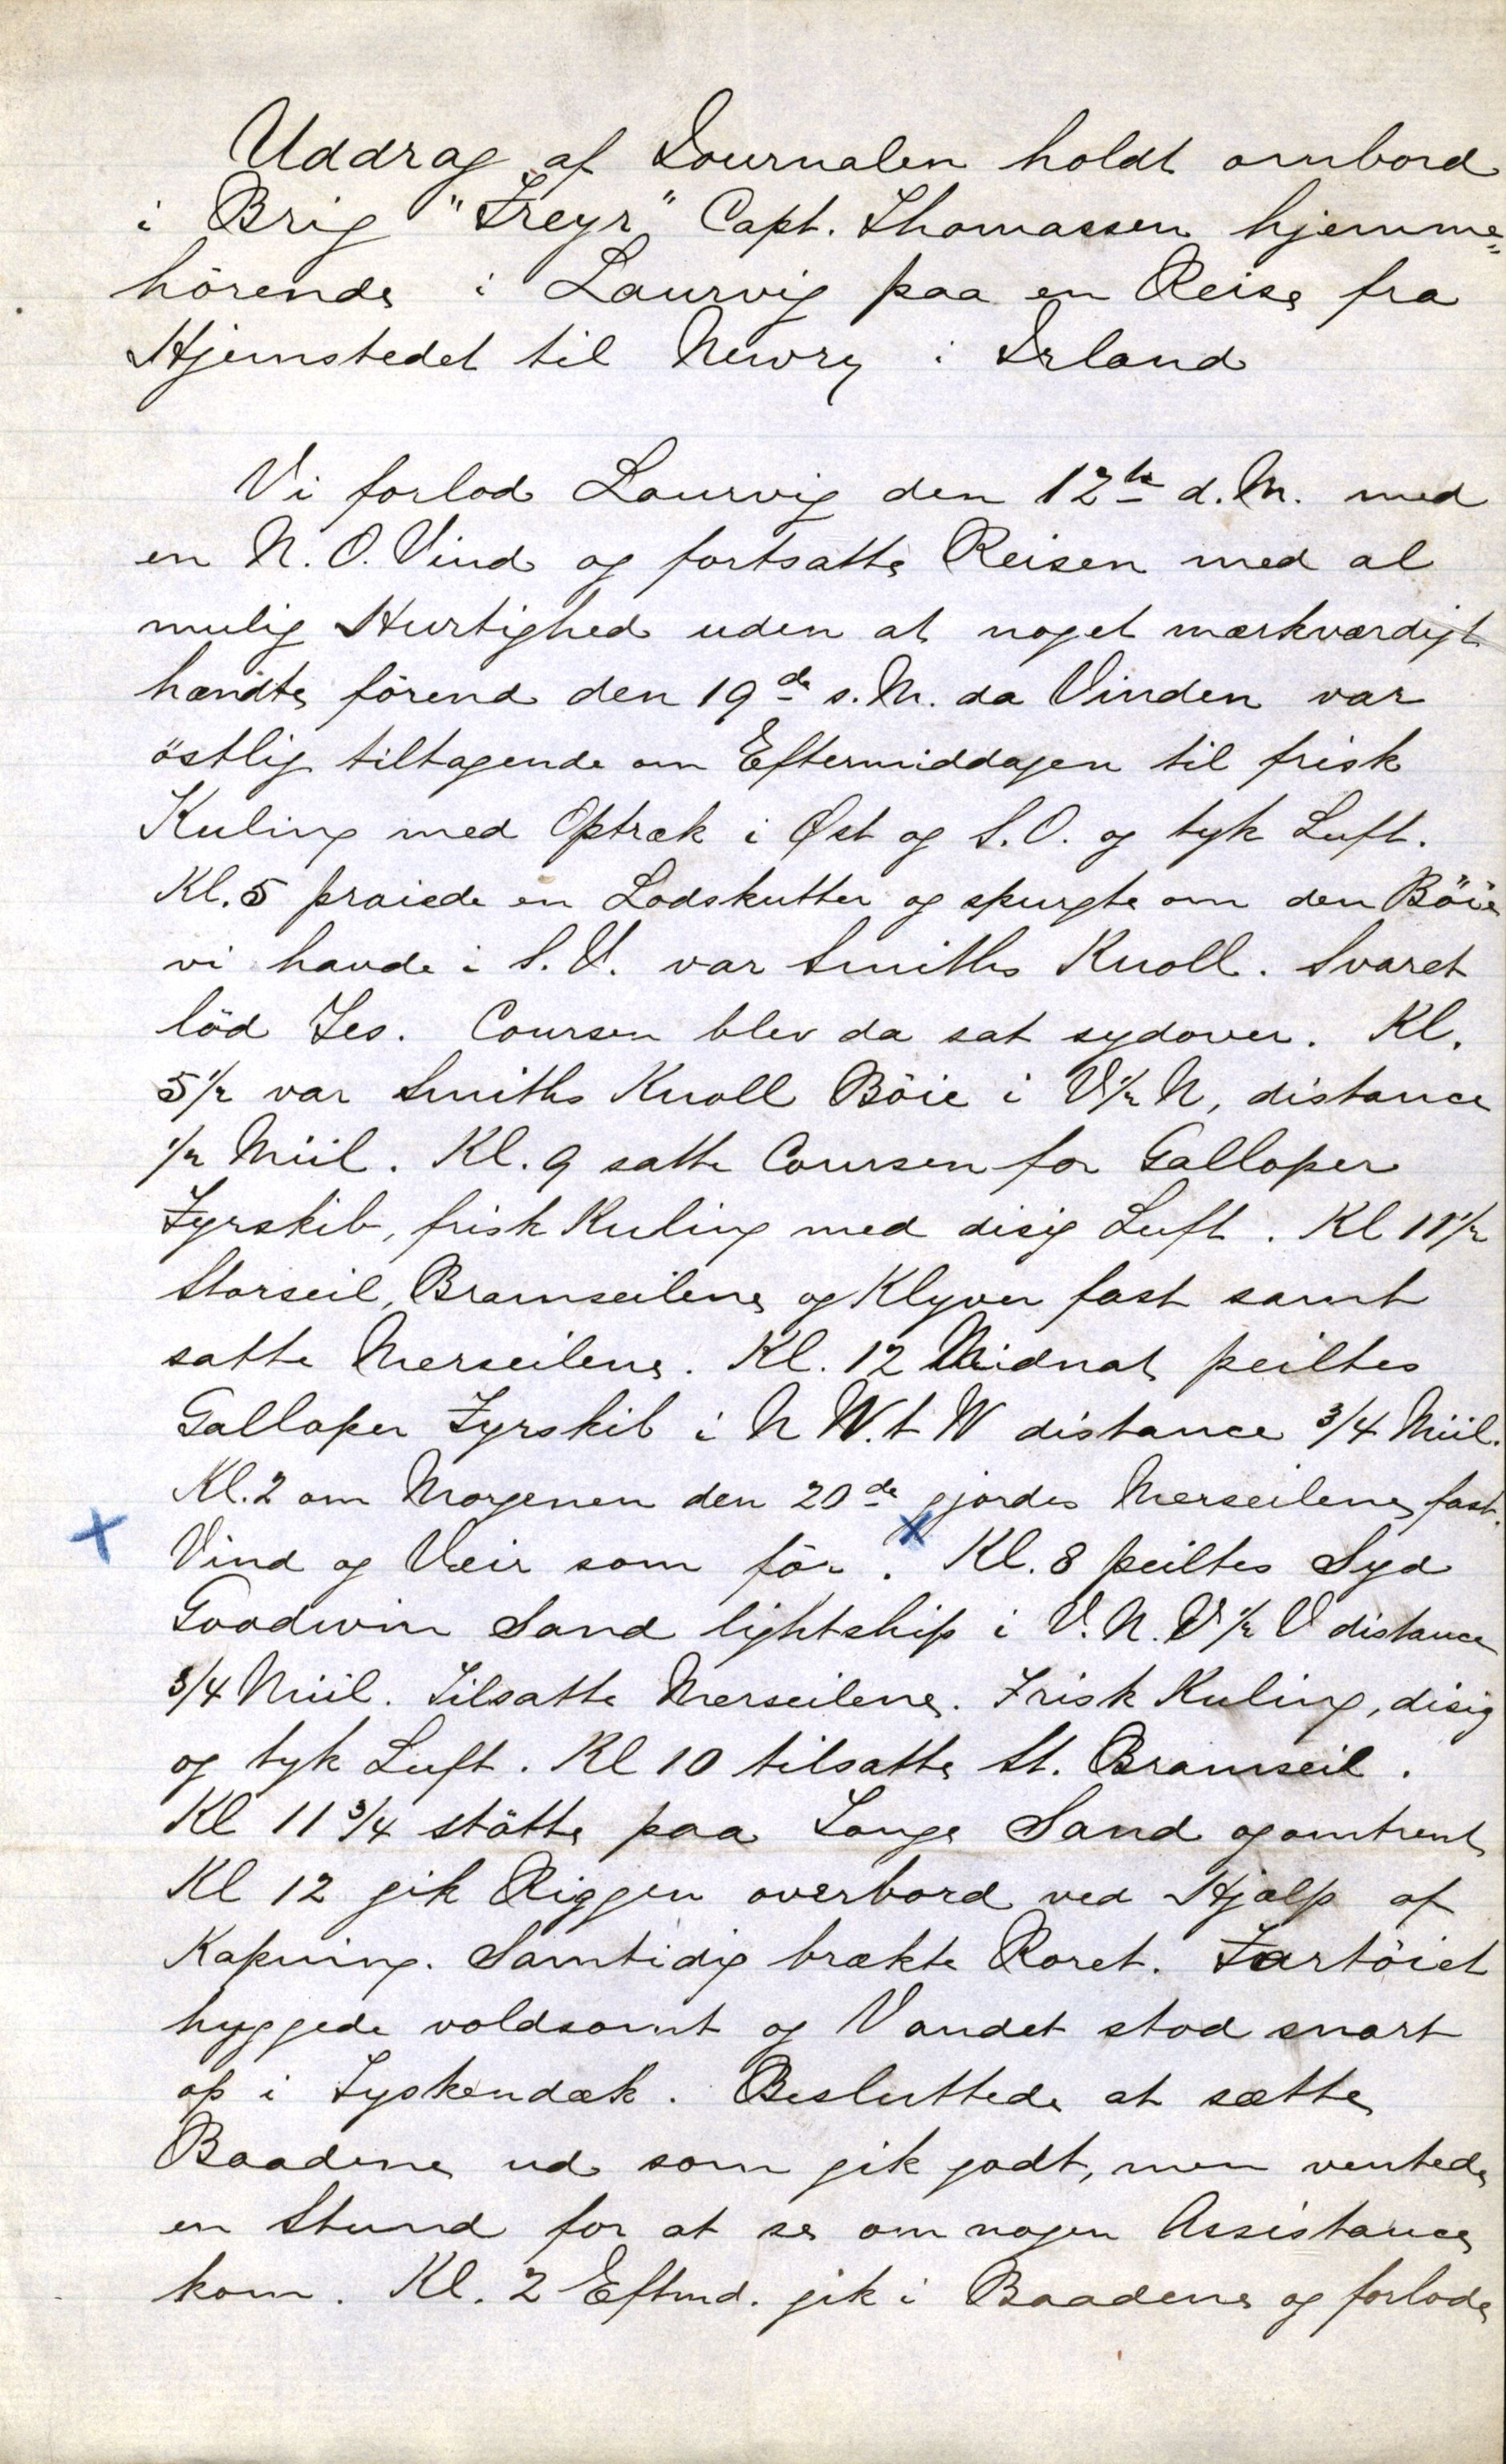 Uddrag af Journalen holdt ombord
i Brig "Freyr" Capt. Thomassen hjemme=
hörende i Laurvig paa en Reise fra
Hjemstedet til Newry i Irland
Vi forlod Laurvig den 12te d. M. med
en N. O. Vind og fortsatte Reisen med al
mulig Hurtighed uden at noget mærkværdigt
hændte förend den 19de s. M. da Vinden var
östlig tiltagende om Eftermiddagen til frisk
Kuling med Optræk i Øst og S. O. og tyk Luft.
Kl. 5 praiede en Lodskutter og spurgte om den Böie
vi havde i S. V. var Smiths Knoll. Svaret
löd Jes. Coursen blev da sat sydover. Kl.
5 1/2 var Smiths Knoll Böie i V 1/2 N, distance
1/2 Miil. Kl. 9 satte Coursen for Galloper
Fyrskib, frisk Kuling med disig Luft. Kl 11 1/2
Storseil, Bramseilene og Klyver fast samt
satte Merseilene. Kl. 12 Midnat peiltes
Galloper Fyrskib i N W. t W distance 3/4 Miil.
Kl. 2 om Morgenen den 20de gjordes Merseilene fast.
x Vind og Veir som för. x Kl. 8 peiltes Syd
Goodwin Sand lightship i V. N. V 1/2 V distance
3/4 Miil. Tilsatte Merseilene. Frisk Kuling, disig
og tyk Luft. Kl 10 tilsatte St. Bramseil.
Kl 11 3/4 stötte paa Longe Sand og omtrent
Kl 12 gik Riggen overbord ved Hjælp af
Kapning. Samtidig brækte Roret. Fartöiet
huggede voldsomt og Vandet stod snart
op i Tyskendæk. Besluttede at sætte
Baadene ud som gik godt, men ventede
en Stund for at se om nogen Assistance
kom. Kl. 2 Eftmd. gik i Baadene og forlode